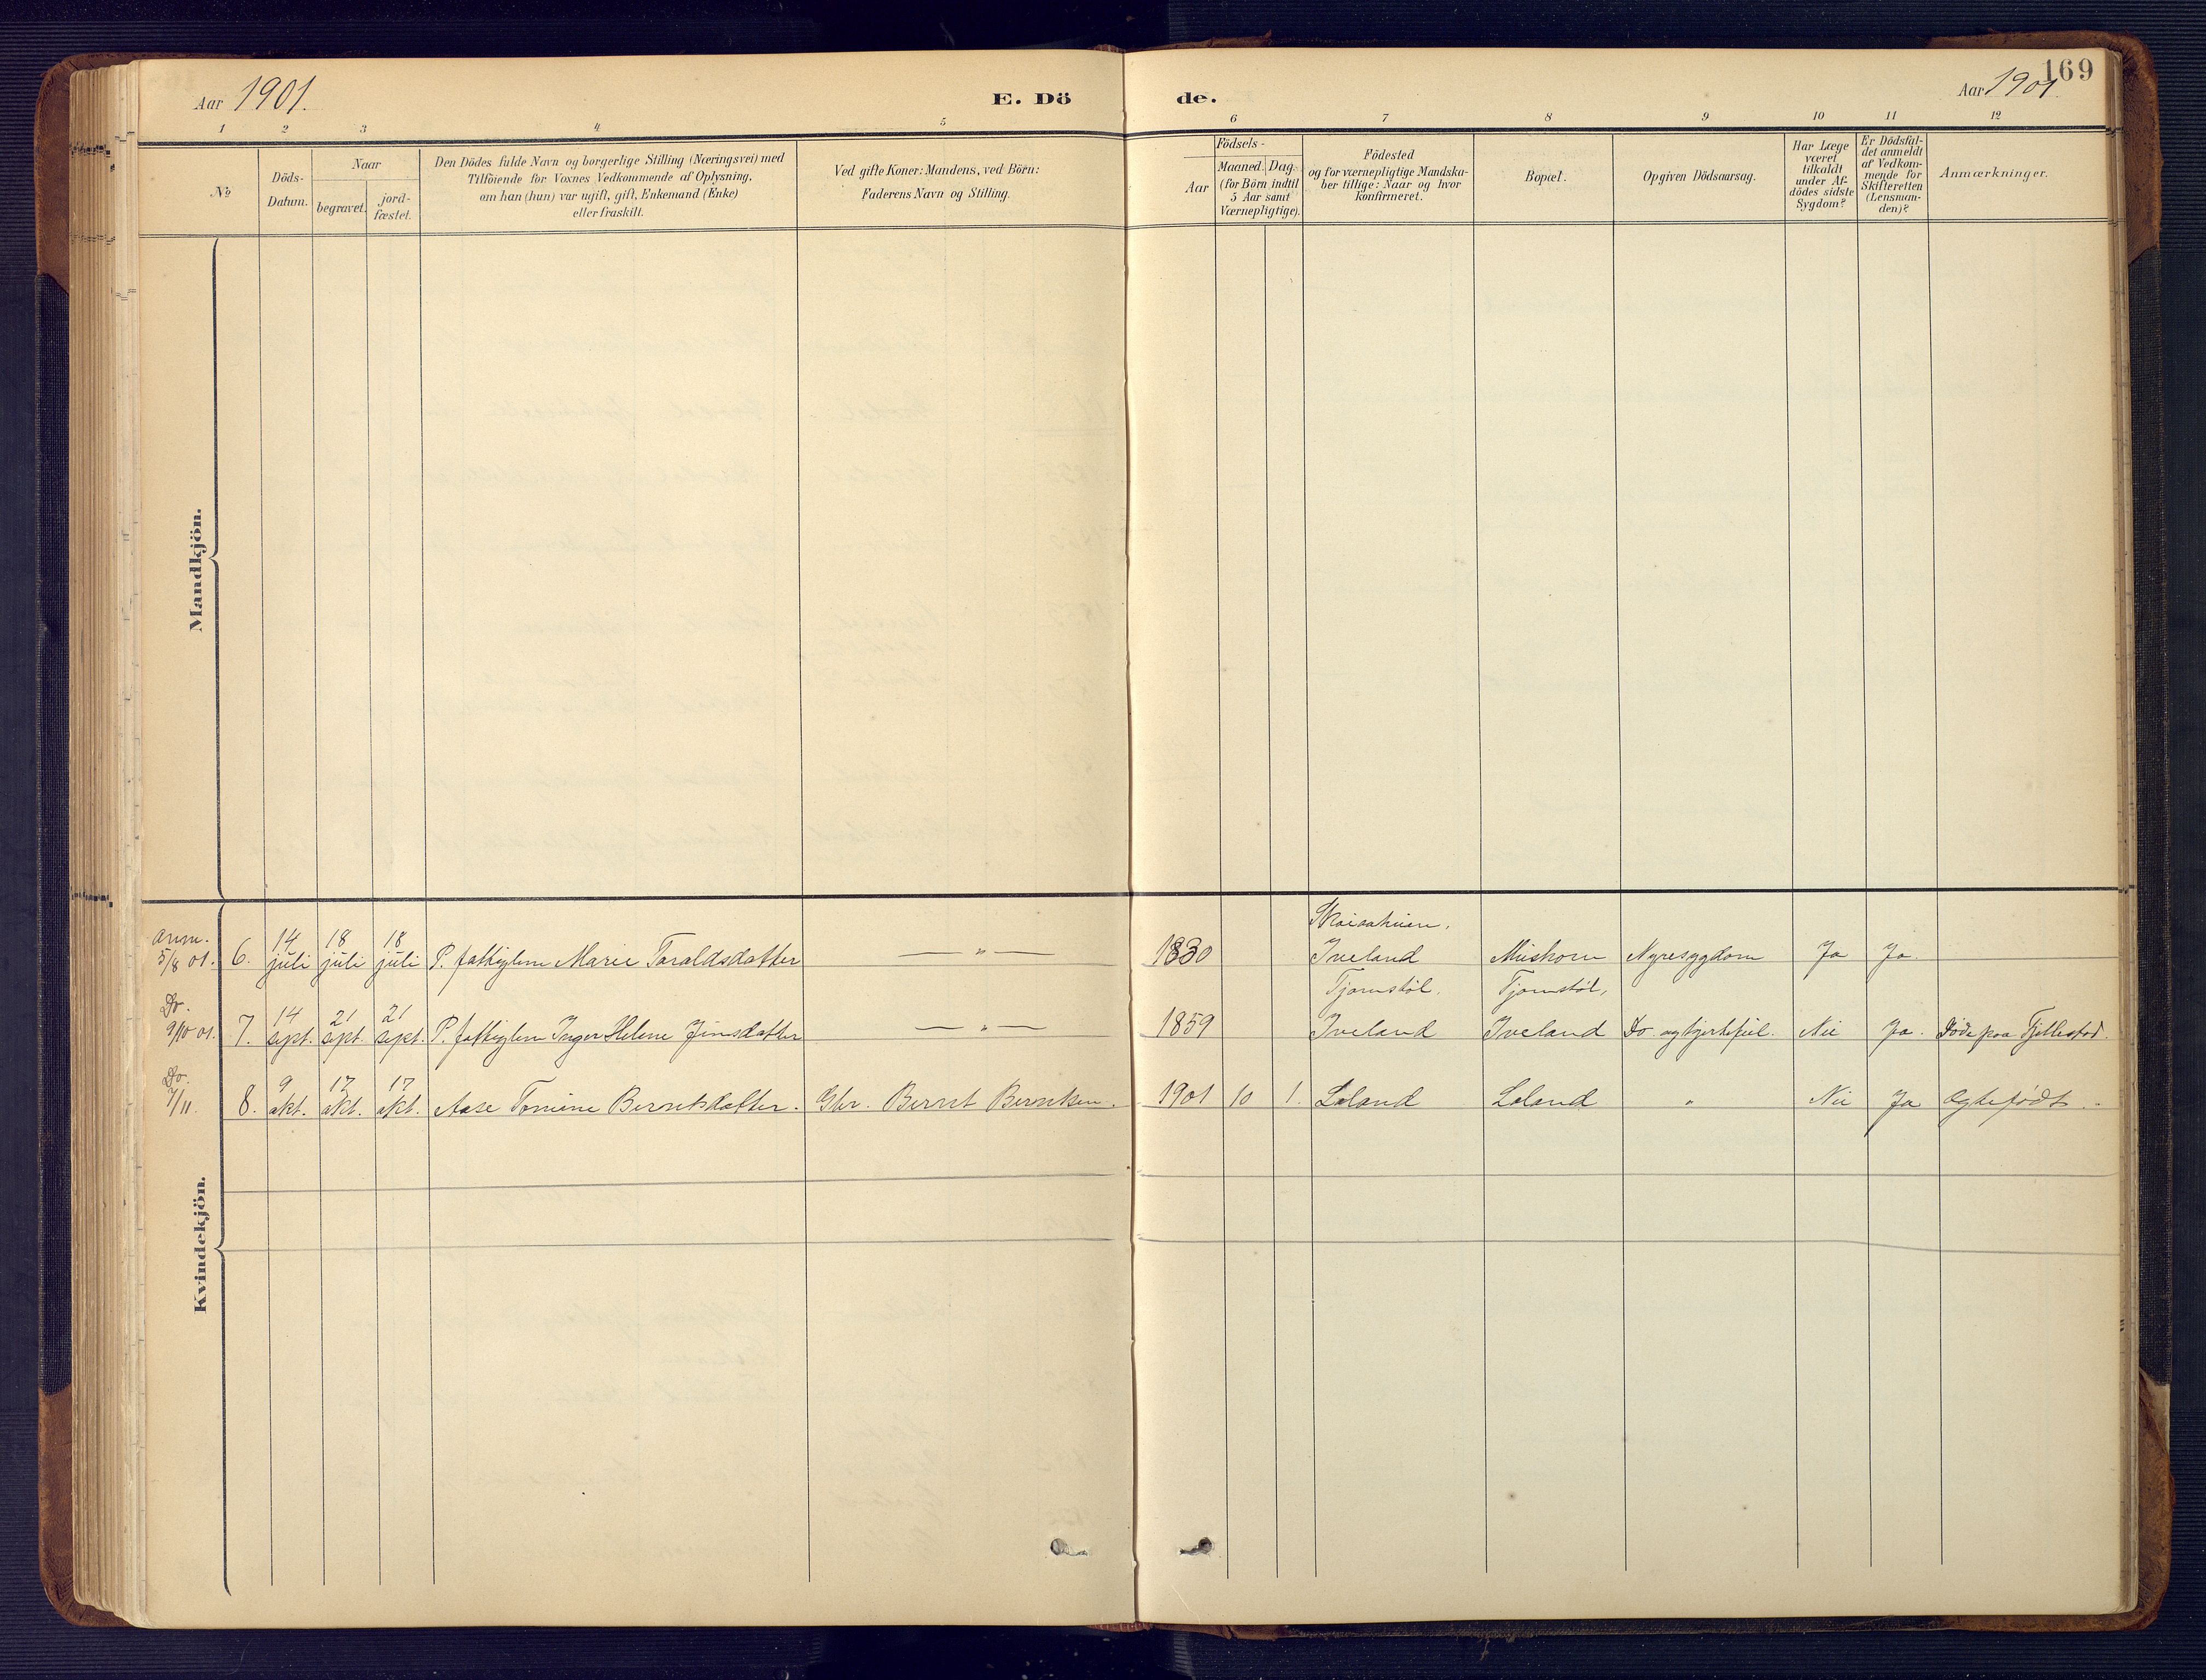 169
Aar 1901.
E. Dö
de.
Aar 1901
1 2 3 4 5
6 7 8 9 10 11 12
No
Döds-
Datum.
Naar
begravet.
jord-
fæstet.
Den Dödes fulde Navn og borgerlige Stilling (Næringsvei) med
Tilföiende for Voxnes Vedkommende af Oplysning,
om han (hun) var ugift, gift, Enkemand (Enke)
eller fraskilt.
Ved gifte Koner: Mandens, ved Börn:
Faderens Navn og Stilling.
Födsels-
Aar
Maaned. Dag.
(for Börn indtil
5 Aar samt
Værnepligtige).
Födested
og for værnepligtige Mandska-
ber tillige: Naar og hvor
konfirmeret.
Bopæl.
Opgiven Dödsaarsag.
Har Læge
været
tilkaldt
under Af-
dödes sidste
Sygdom?
Er Dödsfal-
det anmeldt
af Vedkom-
mende for
Skifteretten
(Lensman-
den)?
Anmærkninger.
Mandkjön.
Kvindekjön.
anm.
5/8 01. 6. 14 juli 18 juli 18 juli P. fattiglem Marie Taraldsdatter — " — 1830
Iveland Nyresygdom Ja Ja.
Do.
9/10 01. 7. 14 sept. 21 sept. 21 sept. P. fattiglem Inger Helene — " — 1859
Tjomstöl, Iveland
Tjomstöl, Iveland Do og hjertefeil. Nei Ja. Döde paa
Do.
7/11. 8. 9 okt. 17 okt. 17 okt. Aase Tomine Berntsdatter. Gbr. Bernt Berntsen. 1901 10 1. Loland Loland " Nei Ja Ægtefödt.